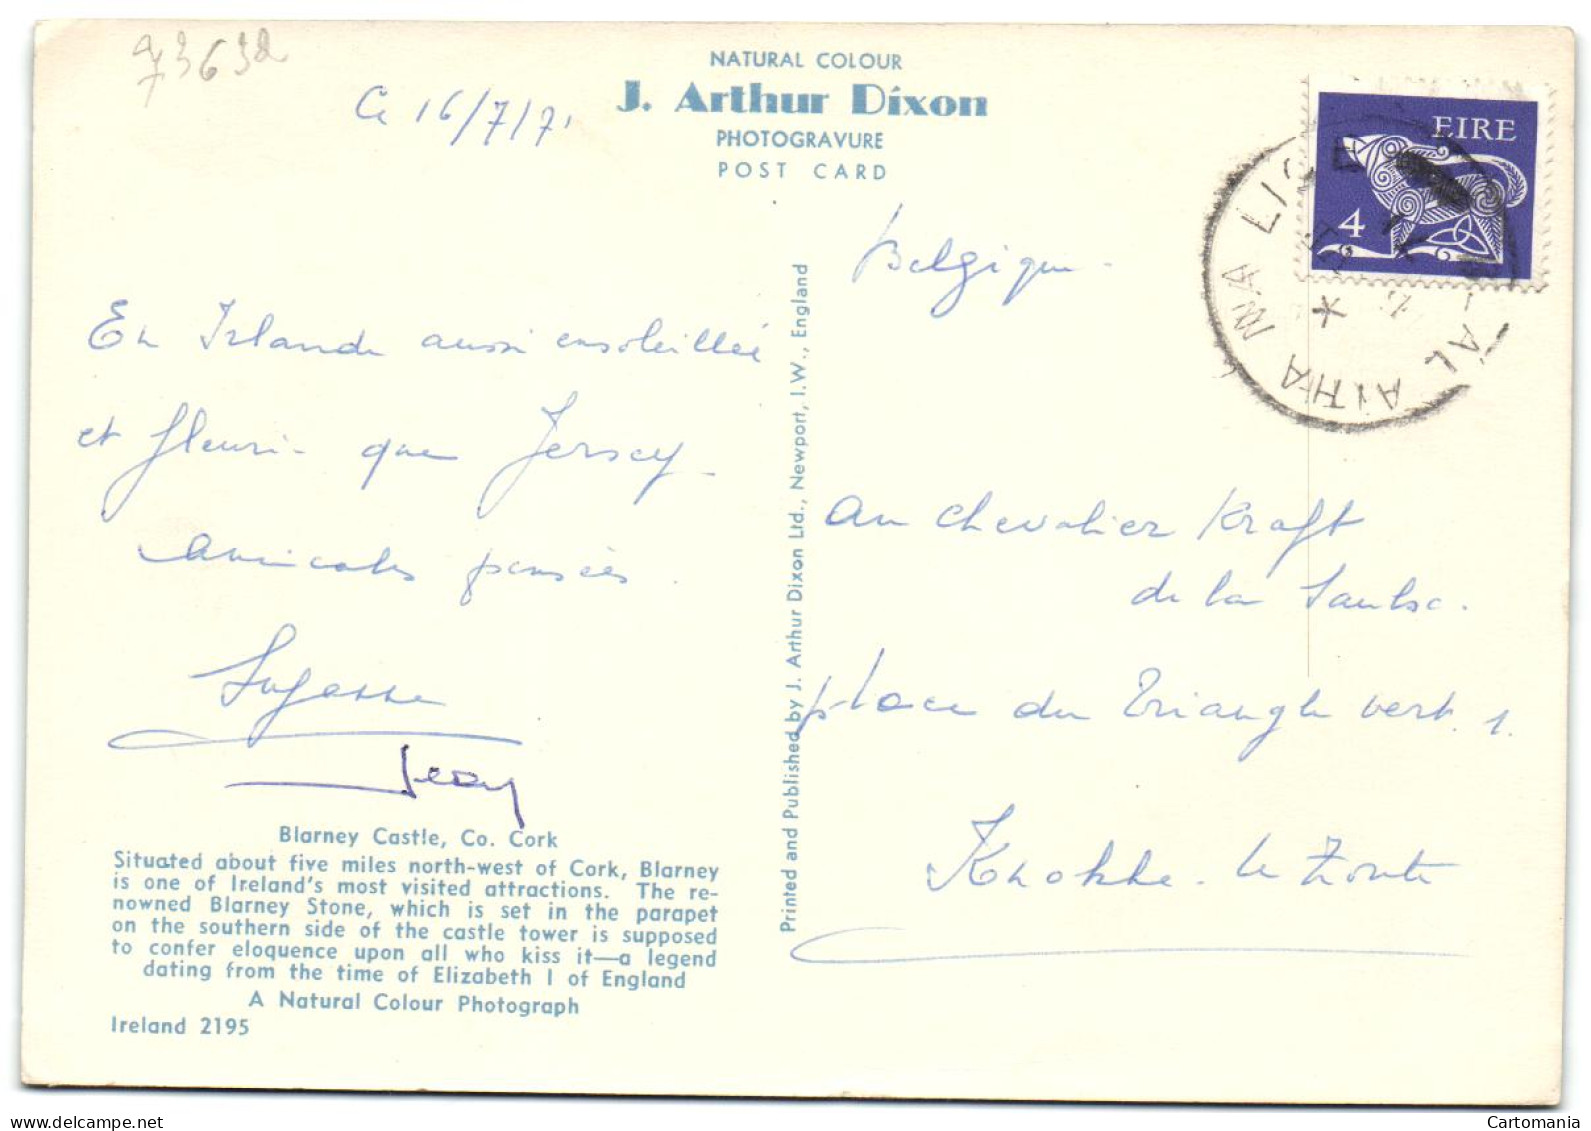 73632
NATURAL COLOUR
J. Arthur Dixon
PHOTOGRAVURE
POST CARD
Ce 16/7/71
EIRE
4
BAILE ÁTHA
Belgique.
En Irlande aussi ensoleillée
et fleurie que Jersey
amicales pensées.
Jean
Au Chevalier Kraft
de la Saulx.
place du Triangle vert. 1.
Knokke. le Zoute
Printed and Published by J. Arthur Dixon Ltd., Newport, I.W., England
Blarney Castle, Co. Cork
Situated about five miles north-west of Cork, Blarney
is one of Ireland's most visited attractions. The re-
nowned Blarney Stone, which is set in the parapet
on the southern side of the castle tower is supposed
to confer eloquence upon all who kiss it—a legend
dating from the time of Elizabeth I of England
A Natural Colour Photograph
Ireland 2195
Cartomania